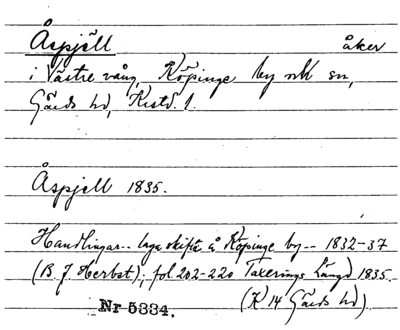 Åspjäll åker
i Västre vång, Köpinge by och sn,
Gärds hd, Krist. l.
Åspjell 1835.
Handlingar -- laga skifte å Köpinge by -- 1832-37
(B. J. Herbst); fol 202-220 Taxerings Längd 1835.
(K 14 Gärds hd).
Nr 5334.